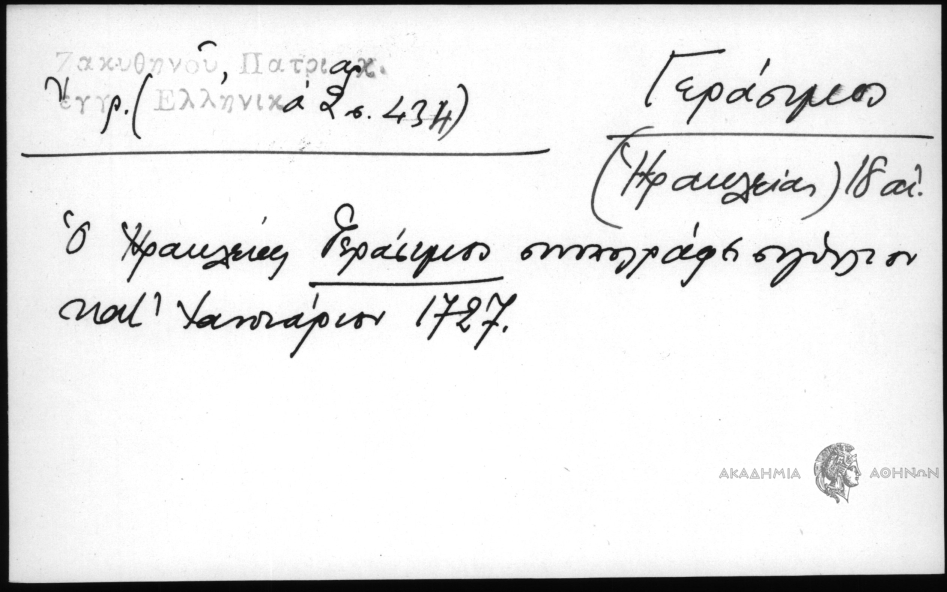 Ζακυθηνοῦ, Πατριαρχ.
ἔγγρ. (Ἑλληνικά 2 σ. 434)
Γεράσιμος
(Ἡρακλείας) 18 αἰ.
Ὁ Ἡρακλείας Γεράσιμος συνυπογράφει σιγίλλιον
κατ' Ἰανουάριον 1727.
ΑΚΑΔΗΜΙΑ ΑΘΗΝΩΝ